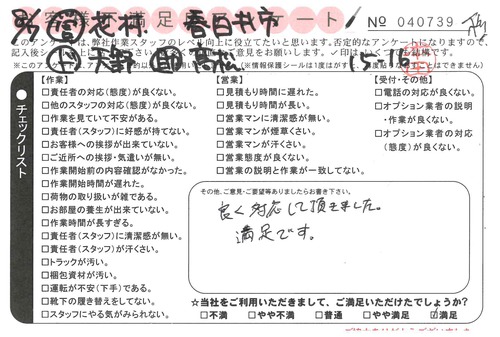 お客様満足アンケート No 040739
春日井市
このアンケートは、弊社作業スタッフのレベル向上に役立てたいと思います。否定的なアンケートになりますので、
15-16
チェックリスト
【作業】
□責任者の対応(態度)が良くない。
□他のスタッフの対応(態度)が良くない。
□作業を見ていて不安がある。
□責任者(スタッフ)に好感が持てない。
□お客様への挨拶が出来ていない。
□ご近所への挨拶・気遣いが無い。
□作業開始前の内容確認がなかった。
□作業開始時間が遅れた。
□荷物の取り扱いが雑である。
□お部屋の養生が出来ていない。
□作業時間が長すぎる。
□責任者(スタッフ)に清潔感が無い。
□責任者(スタッフ)が汗くさい。
□トラックが汚い。
□梱包資材が汚い。
□運転が不安(下手)である。
□靴下の履き替えをしてない。
□スタッフにやる気がみられない。
【営業】
□見積もり時間に遅れた。
□見積もり時間が長い。
□営業マンに清潔感が無い。
□営業マンが煙草くさい。
□営業マンが汗くさい。
□営業態度が良くない。
□営業の説明と作業が一致してない。
【受付・その他】
□電話の対応が良くない。
□オプション業者の説明
・作業が良くない。
□オプション業者の対応
(態度)が良くない。
その他、ご意見・ご要望等ありましたらお書き下さい。
良く対応して頂きました。
満足です。
☆当社をご利用いただきまして、ご満足いただけたでしょうか?
□不満 □やや不満 □普通 □やや満足 ☑満足